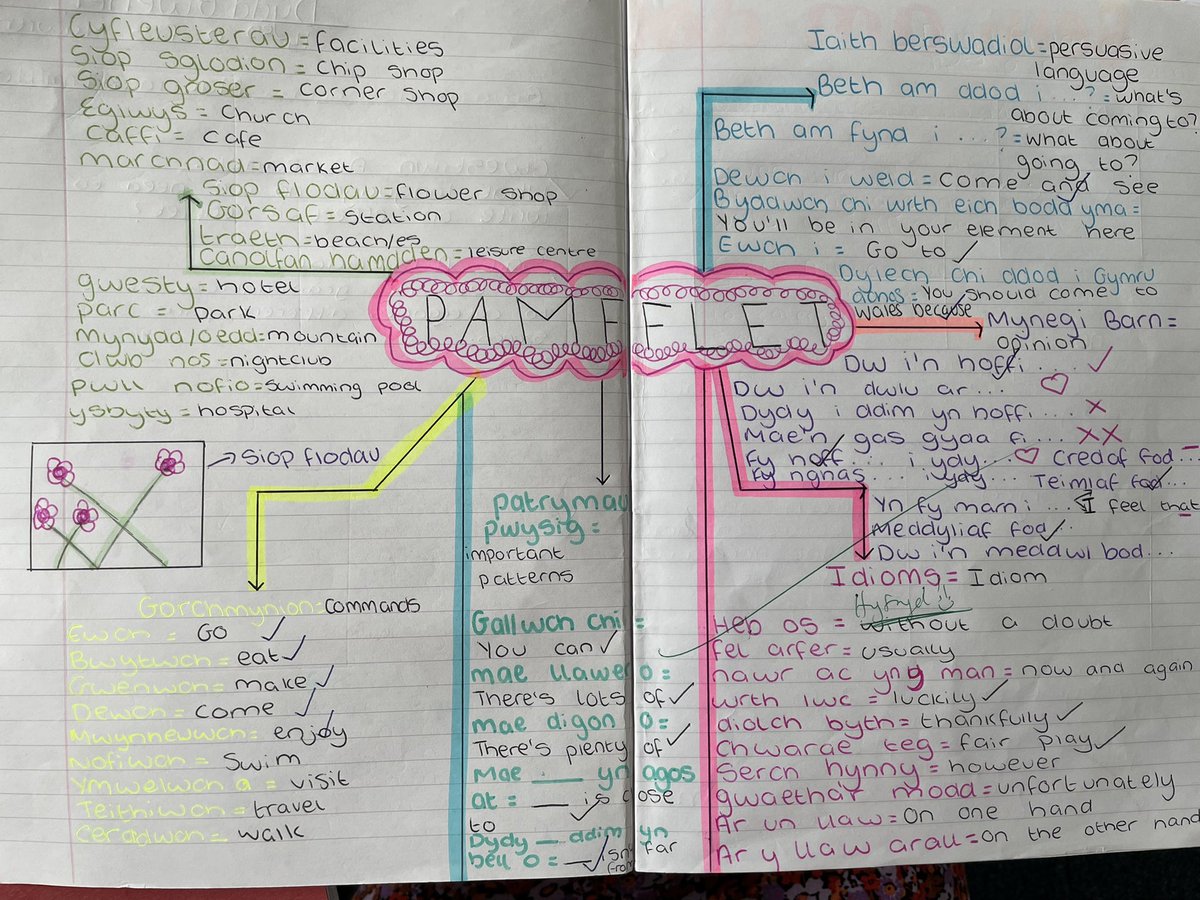 Cyfleusterau = facilities
Siop sglodion = Chip shop
Siop groser = corner shop
Eglwys = Church
Caffi = cafe
marchnad = market
Siop flodau = flower shop
Gorsaf = station
traeth = beach/es
canolfan hamdden = leisure centre
gwesty = hotel
parc = park
mynydd/oedd = mountain
Clwb nos = nightclub
pwll nofio = swimming pool
ysbyty = hospital
Siop flodau
PAMFFLET
Gorchmynion = commands
Ewch = Go
Bwytwch = eat
Gwenwch = make
Dewch = come
Mwynheuwch = enjoy
Nofiwch = Swim
Ymwelwch a = visit
Teithiwch = travel
Cerddwch = walk
patrymau
pwysig =
important
patterns
Gallwch chi =
You can
mae llawer o =
There's lots of
mae digon o =
There's plenty of
Mae ___ yn agos
at = ___ is close
to
Dydy __ ddim yn
bell o = __ isn't far
from
Iaith berswadiol = persuasive
language
Beth am ddod i ...? = what's
about coming to?
Beth am fynd i ....? = what about
going to?
Dewch i weld = come and see
Byddwch chi wrth eich bodd yma =
You'll be in your element here
Ewch i = Go to
Dylech chi ddod i Gymru
achos = You should come to
wales because
Mynegi Barn =
opinion
Dw i'n hoffi ....
Dw i'n dwlu ar ...
Dydy i ddim yn hoffi ....
Mae'n gas gyda fi ...
fy hoff ... i ydy...
Credaf fod ...
fy nghas ... i ydy...
Teimlaf fod ...
Yn fy marn i ...
I feel that
Meddyliaf fod ..
Dw i'n meddwl bod ...
Idioms = Idiom
Hyfryd!
Heb os = without a doubt
fel arfer = usually
nawr ac yng man = now and again
wrth lwc = luckily
diolch byth = thankfully
chwarae teg = fair play
Serch hynny = however
gwaethar modd = unfortunately
Ar un llaw = On one hand
Ar y llaw arall = On the other hand